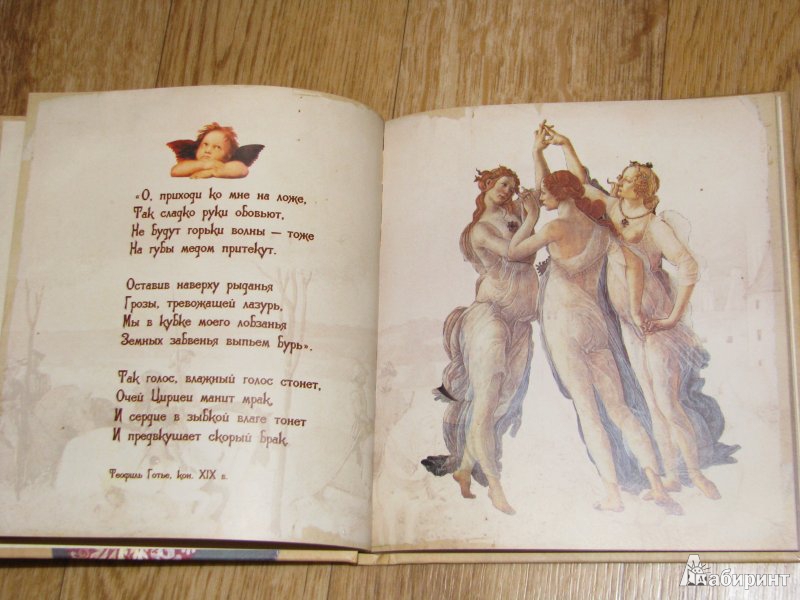 «О, приходи ко мне на ложе,
Так сладко руки обовьют,
Не будут горьки волны — тоже
На губы медом притекут.
Оставив наверху рыданья
Грозы, тревожащей лазурь,
Мы в кубке моего лобзанья
Земных забвенья выпьем бурь».
Так голос, влажный голос стонет,
Очей Цирцеи манит мрак,
И сердце в зыбкой влаге тонет
И предвкушает скорый брак.
Теофиль Готье, кон. XIX в.
Лабиринт